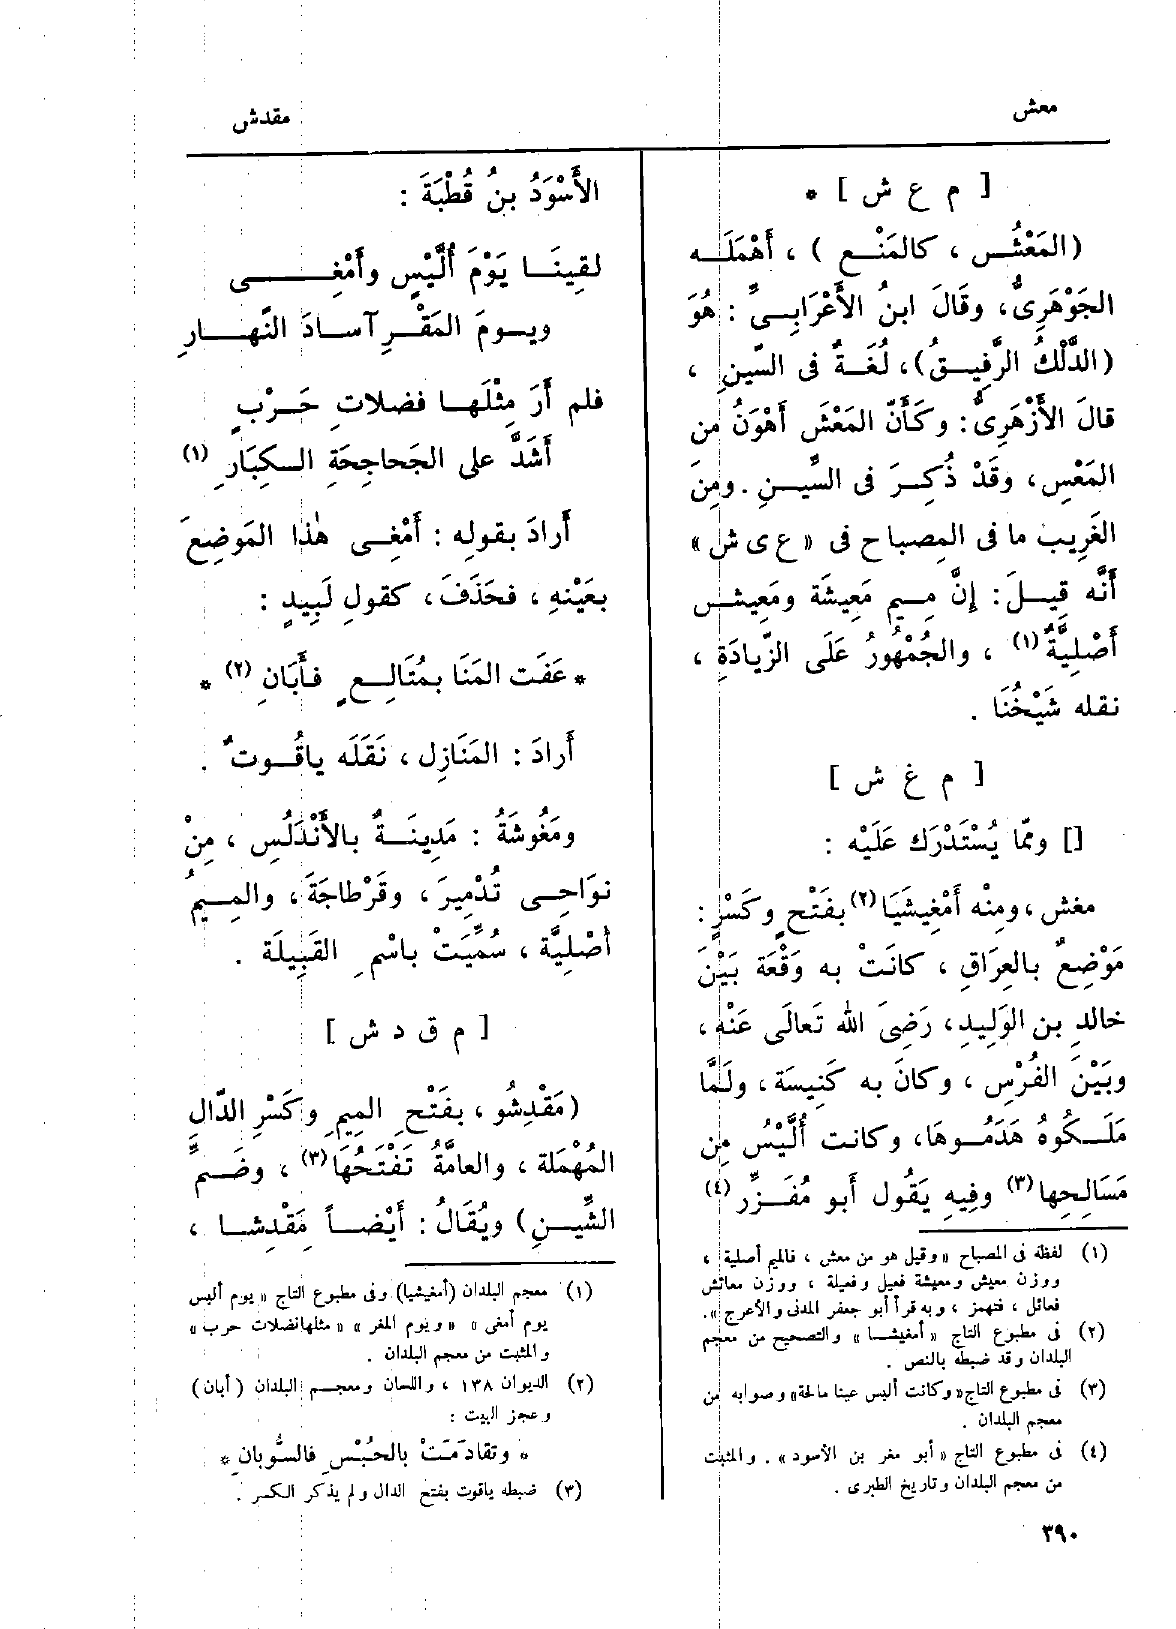 معش
مقدش
[ م ع ش ] *
(المَعْشُ ، كالمَنْعِ ) ، أَهْمَلَه
الجَوْهَرِىُّ، وقَالَ ابنُ الأَعْرَابِىِّ : هُوَ
(الدَّلْكُ الرَّفِيقُ)، لُغَةٌ فى السِّينِ ،
قالَ الأَزْهَرِىُّ: وكَأَنَّ المَعْشَ أَهْوَنُ من
المَعْسِ، وقَدْ ذُكِرَ فى السِّينِ . ومِنَ
الغَرِيب ما فى المِصباح فى « ع ى ش »
أَنَّه قِيلَ: إِنَّ مِيم مَعِيشَة ومَعِيش
أَصْلِيَّةٌ (١) ، والجُمْهُورُ عَلَى الزِّيادَةِ ،
نقله شَيْخُنَا .
[ م غ ش ]
[] وممّا يُسْتَدْرَك عَلَيْه :
مغش ، ومِنْه أَمْغِيشَيَا (٢) بفَتْحٍ وكَسْرٍ :
مَوْضِعٌ بالعِرَاقِ ، كانَتْ به وَقْعَة بَيْنَ
خالدِ بن الوَلِيدِ، رَضِىَ الله تَعالَى عَنْه ،
وبَيْنَ الفُرْس ، وكانَ به كَنِيسَة ، ولَمَّا
مَلَكُوهُ هَدَمُوهَا، وكانت أُلَّيْسُ مِن
مَسَالِحِها (٣) وفيهِ يَقُول أبو مُفَزِّر (٤)
(١) لفظة فى المصباح «وقيل هو من معش ، فالميم أصلية ،
ووزن معيش ومعيشة فعيل وفعيلة ، ووزن معائش
فعائل ، فتهمز ، وبه قرأ أبو جعفر المدنى والأعرج ».
(٢) فى مطبوع التاج « أمغيشا » والتصحيح من معجم
البلدان وقد ضبطه بالنص .
(٣) فى مطبوع التاج« وكانت أليس عينا مالحة» وصوابه من
معجم البلدان .
(٤) فى مطبوع التاج « أبو مغر بن الأسود » . والمثبت
من معجم البلدان وتاريخ الطبرى .
٣٩٠
الأَسْوَدُ بنُ قُطْبَةَ :
لقِينَا يَوْمَ أُلَّيْسٍ وأَمْغِى
ويومَ المَقْرِ آسادَ النَّهارِ
فلم أَرَ مِثْلَها فضلاتِ حَرْبٍ
أَشَدَّ على الجَحاجِحَةِ الكِبَارِ (١)
أَرادَ بقوله : أَمْغِى هٰذا المَوضِعَ
بعَيْنهِ ، فحَذَفَ ، كقولِ لَبِيدٍ :
* عَفَت المَنَا بمُتَالِعٍ فأَبَانِ (٢) *
أَرادَ : المَنَازِل ، نَقَلَه ياقُوتٌ .
ومَغُوشَةُ : مَدِينَةٌ بالأَنْدَلُس ، مِنْ
نوَاحِى تُدْمِيرَ ، وقَرْطاجَةَ ، والمِيمُ
أَصْلِيَّة ، سُمِّيَتْ باسْمِ القَبِيلَة .
[ م ق د ش ]
(مَقْدِشُو ، بفَتْحِ المِيمِ وكَسْرِ الدّالِ
المُهْمَلة ، والعامَّةُ تَفْتَحُها (٣) ، وضَمِّ
الشِّينِ) ويُقَالُ : أَيْضاً مَقْدِشا ،
(١) معجم البلدان (أمغيشيا) وفى مطبوع التاج « يوم أليس
يوم أمغى » «ويوم المغر » « مثلها نضلات حرب »
والمثبت من معجم البلدان .
(٢) الديوان ١٣٨ ، واللسان ومعجم البلدان ( أبان )
وعجز البيت :
* وتقادَمَتْ بالحُبْسِ فالسُّوبانِ *
(٣) ضبطه ياقوت بفتح الدال ولم يذكر الكسر .